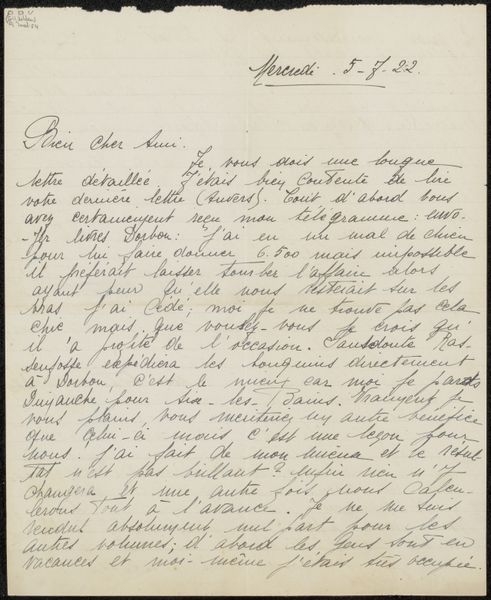 Mercredi . 5-7-22
Bien cher Ami.
Je vous dois une longue
lettre détaillée. J'étais bien contente de lire
votre dernière lettre (Anvers). Tout d'abord vous
avez certainement reçu mon télégramme: envo-
-yer livres Dorbon: J'ai eu un mal de chien
pour lui faire donner 6.500 mais impossible
il préférait laisser tomber l'affaire alors
ayant peur qu'elle nous resterait sur les
bras j'ai cédé; moi je ne trouve pas cela
chic mais, que voulez-vous je crois qu'
il a profité de l'occasion. Sansdoute Ras-
senfosse expédiera les bouquins directement
à Dorbon, c'est le mieux car moi je pars
Dimanche pour Aix-les-Bains. Vraiment je
vous plains, vous méritiez un autre bénéfice
que celui-ci mais c'est une leçon pour
nous. J'ai fait de mon mieux et le résul
tat n'est pas brillant? Enfin rien n'y
changera et une autre fois nous calcu-
lerons tout à l'avance. Je ne me suis
rendue absolument nul part pour les
autres volumes; d'abord les gens sont en
vacances et moi-même j'étais très occupée.